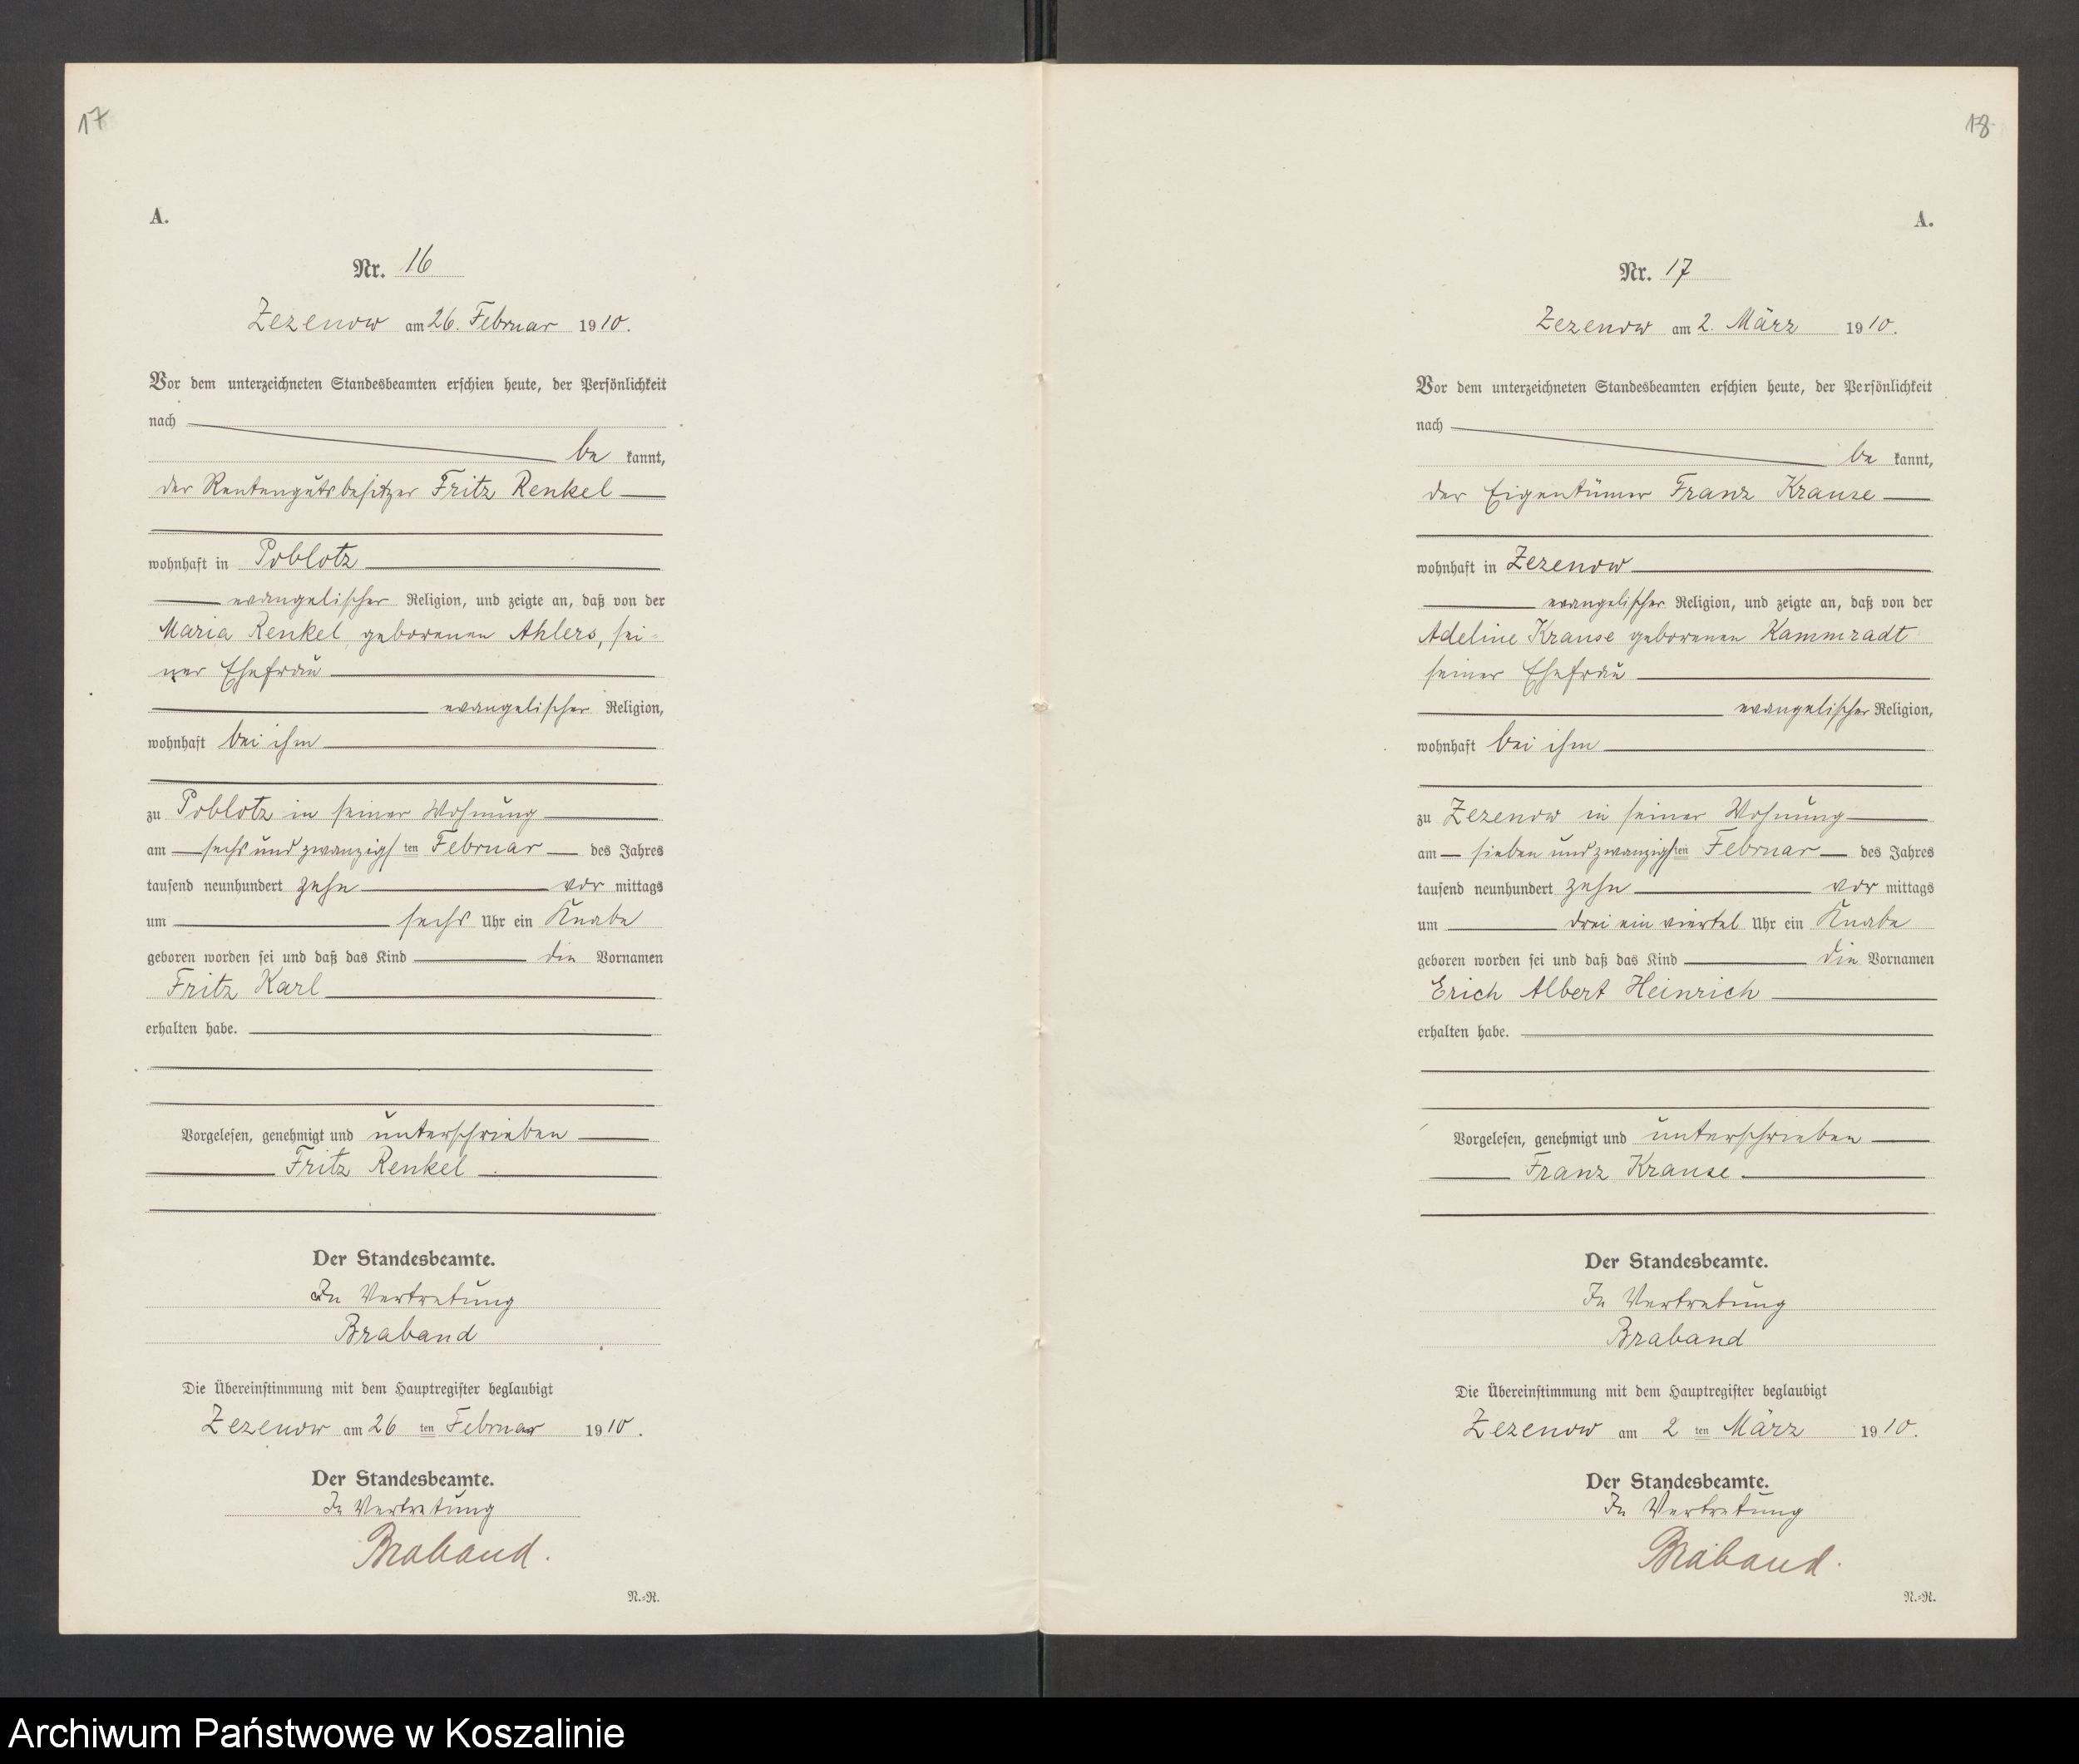 17
A.
Nr. 16
Zezenow am 26. Februar 1910.
Vor dem unterzeichneten Standesbeamten erschien heute, der Persönlichkeit
nach
be kannt,
der Rentengutsbesitzer Fritz Renkel
wohnhaft in Poblotz
evangelischer Religion, und zeigte an, daß von der
Maria Renkel geborenen Ahlers, sei-
ner Ehefrau
evangelischer Religion,
wohnhaft bei ihm
zu Poblotz in seiner Wohnung
am sechsundzwanzigsten Februar des Jahres
tausend neunhundert zehn vor mittags
um sechs Uhr ein Knabe
geboren worden sei und daß das Kind die Vornamen
Fritz Karl
erhalten habe.
Vorgelesen, genehmigt und unterschrieben
Fritz Renkel.
Der Standesbeamte.
In Vertretung
Braband
Die Übereinstimmung mit dem Hauptregister beglaubigt
Zezenow am 26 ten Februar 1910.
Der Standesbeamte.
In Vertretung
Braband.
N.=R.
18
A.
Nr. 17
Zezenow am 2. März 1910.
Vor dem unterzeichneten Standesbeamten erschien heute, der Persönlichkeit
nach
be kannt,
der Eigentümer Franz Krause
wohnhaft in Zezenow
evangelischer Religion, und zeigte an, daß von der
Adeline Krause geborenen Kammradt
seiner Ehefrau
evangelischer Religion,
wohnhaft bei ihm
zu Zezenow in seiner Wohnung
am siebenundzwanzigsten Februar des Jahres
tausend neunhundert zehn vor mittags
um drei ein viertel Uhr ein Knabe
geboren worden sei und daß das Kind die Vornamen
Erich Albert Heinrich
erhalten habe.
Vorgelesen, genehmigt und unterschrieben
Franz Krause.
Der Standesbeamte.
In Vertretung
Braband
Die Übereinstimmung mit dem Hauptregister beglaubigt
Zezenow am 2 ten März 1910.
Der Standesbeamte.
In Vertretung
Braband.
N.=R.
Archiwum Państwowe w Koszalinie